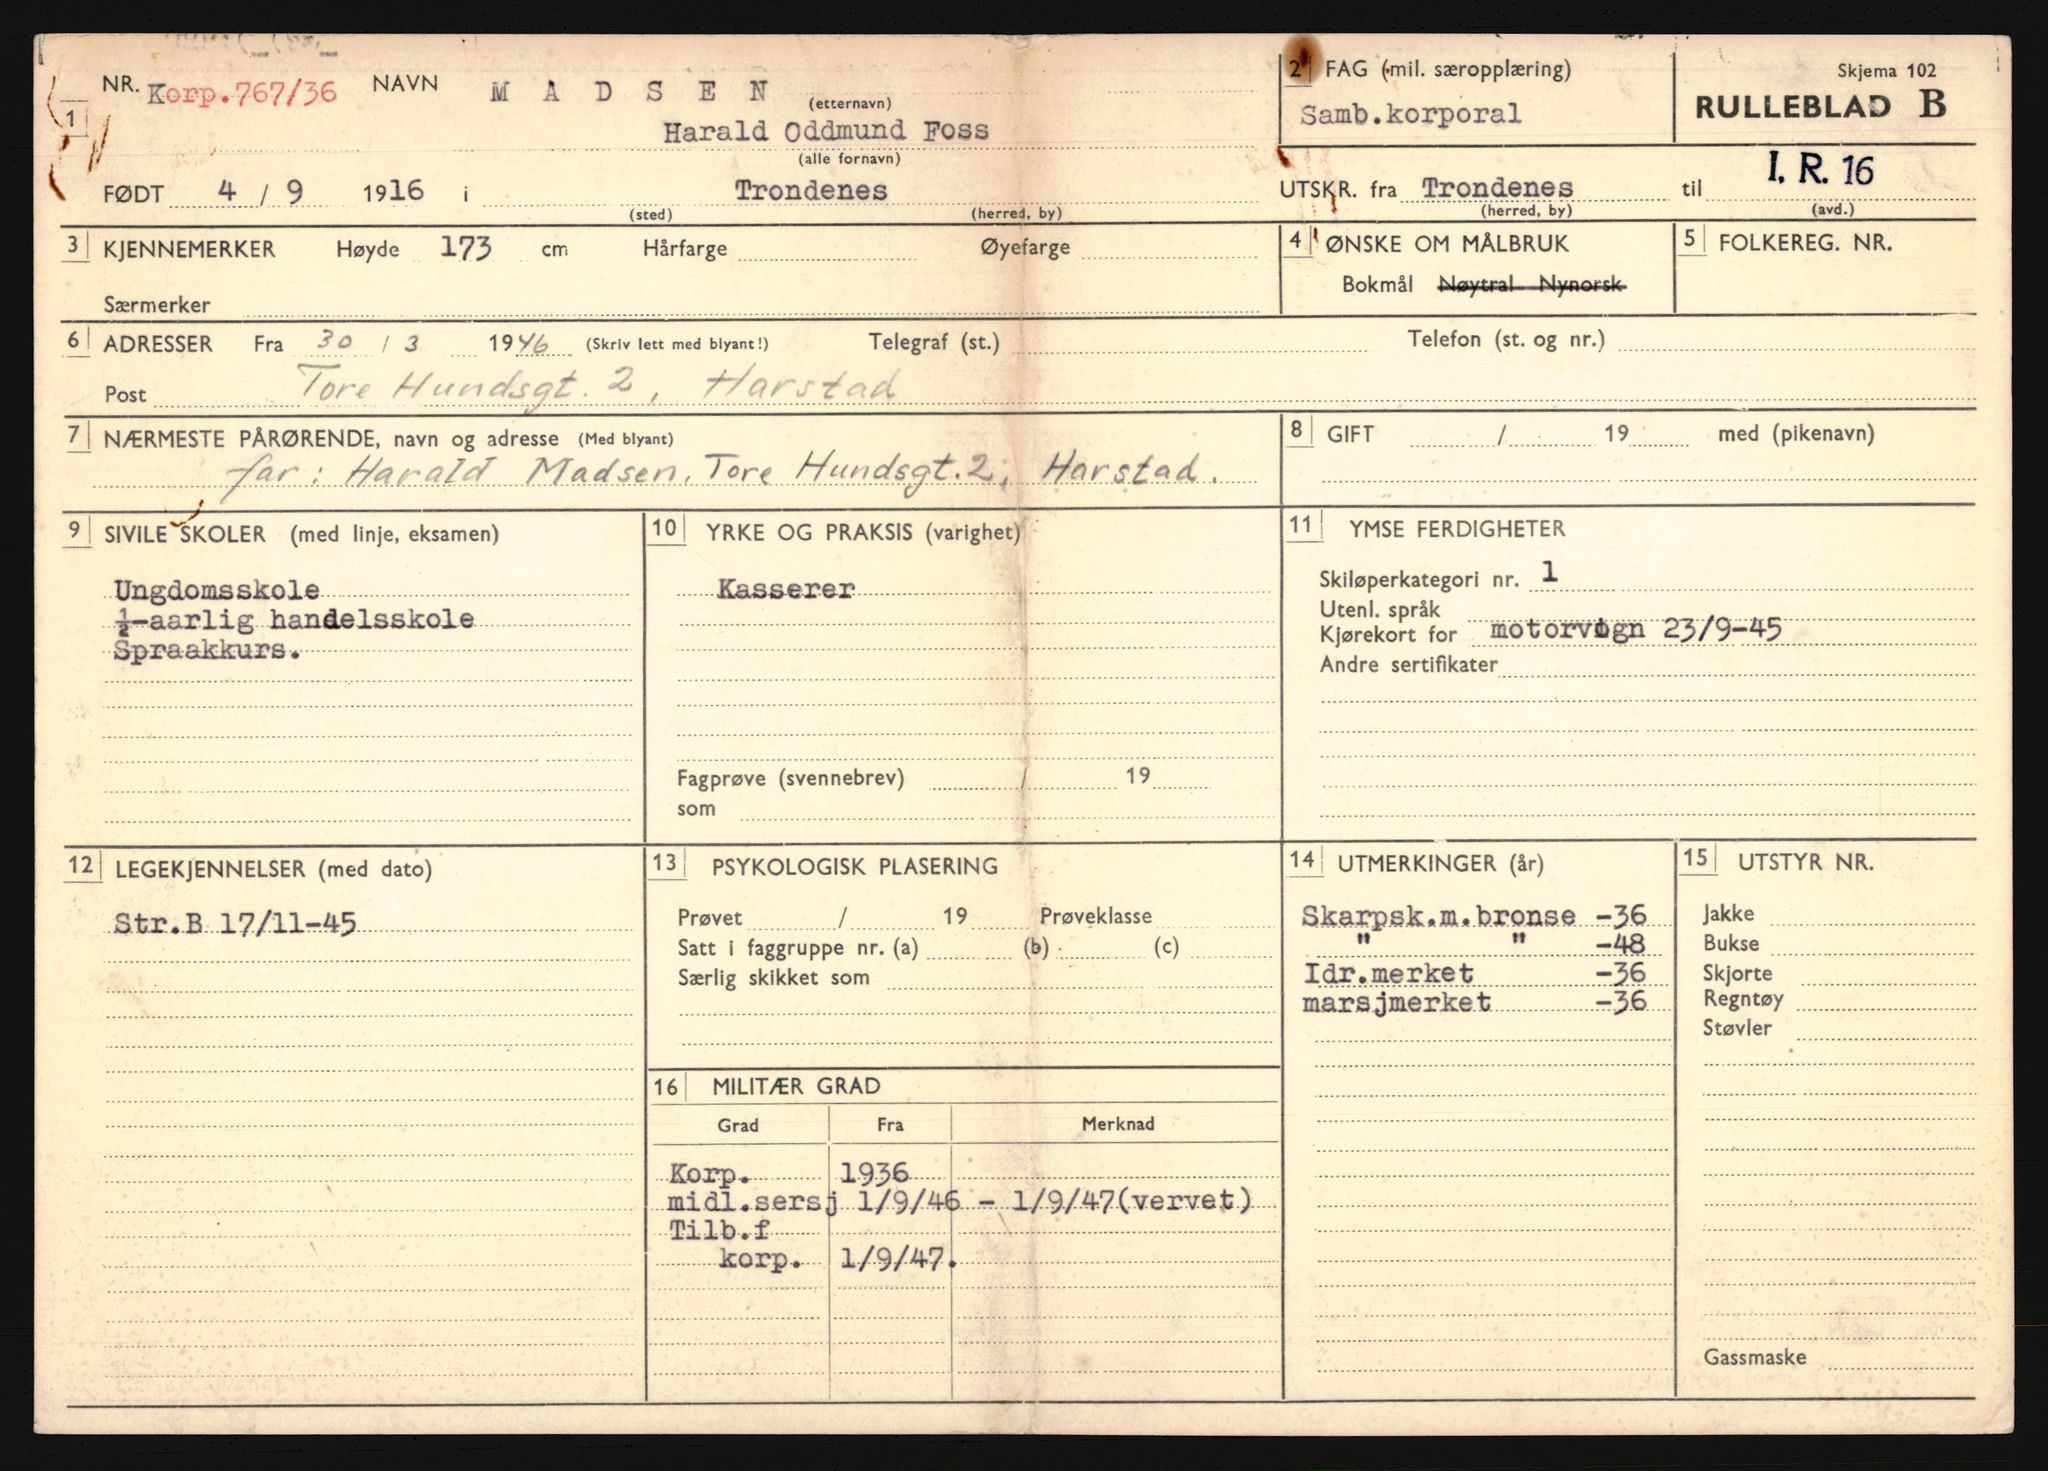 1 NR. Korp.767/36 NAVN M A D S E N (etternavn)
Harald Oddmund Foss
(alle fornavn)
FØDT 4 / 9 1916 i Trondenes
(sted) (herred, by)
2 FAG (mil. særopplæring)
Samb.korporal
Skjema 102
RULLEBLAD B
UTSKR. fra Trondenes til I. R. 16
(herred, by) (avd.)
3 KJENNEMERKER Høyde 173 cm Hårfarge Øyefarge
Særmerker
4 ØNSKE OM MÅLBRUK
Bokmål Nøytral Nynorsk
5 FOLKEREG. NR.
6 ADRESSER Fra 30 / 3 1946 (Skriv lett med blyant!) Telegraf (st.) Telefon (st. og nr.)
Post Tore Hundsgt. 2, Harstad
7 NÆRMESTE PÅRØRENDE, navn og adresse (Med blyant)
far: Harald Madsen, Tore Hundsgt. 2, Harstad.
8 GIFT / 19 med (pikenavn)
9 SIVILE SKOLER (med linje, eksamen)
Ungdomsskole
½-aarlig handelsskole
Spraakkurs.
10 YRKE OG PRAKSIS (varighet)
Kasserer
Fagprøve (svennebrev) / 19
som
11 YMSE FERDIGHETER
Skiløperkategori nr. 1
Utenl. språk
Kjørekort for motorvogn 23/9-45
Andre sertifikater
12 LEGEKJENNELSER (med dato)
Str.B 17/11-45
13 PSYKOLOGISK PLASERING
Prøvet / 19 Prøveklasse
Satt i faggruppe nr. (a) (b) (c)
Særlig skikket som
14 UTMERKINGER (år)
Skarpsk.m.bronse -36
" " -48
Idr.merket -36
marsjmerket -36
15 UTSTYR NR.
Jakke
Bukse
Skjorte
Regntøy
Støvler
Gassmaske
16 MILITÆR GRAD
Grad Fra Merknad
Korp. 1936
midl.sersj 1/9/46 - 1/9/47(vervet)
Tilb.f
korp. 1/9/47.